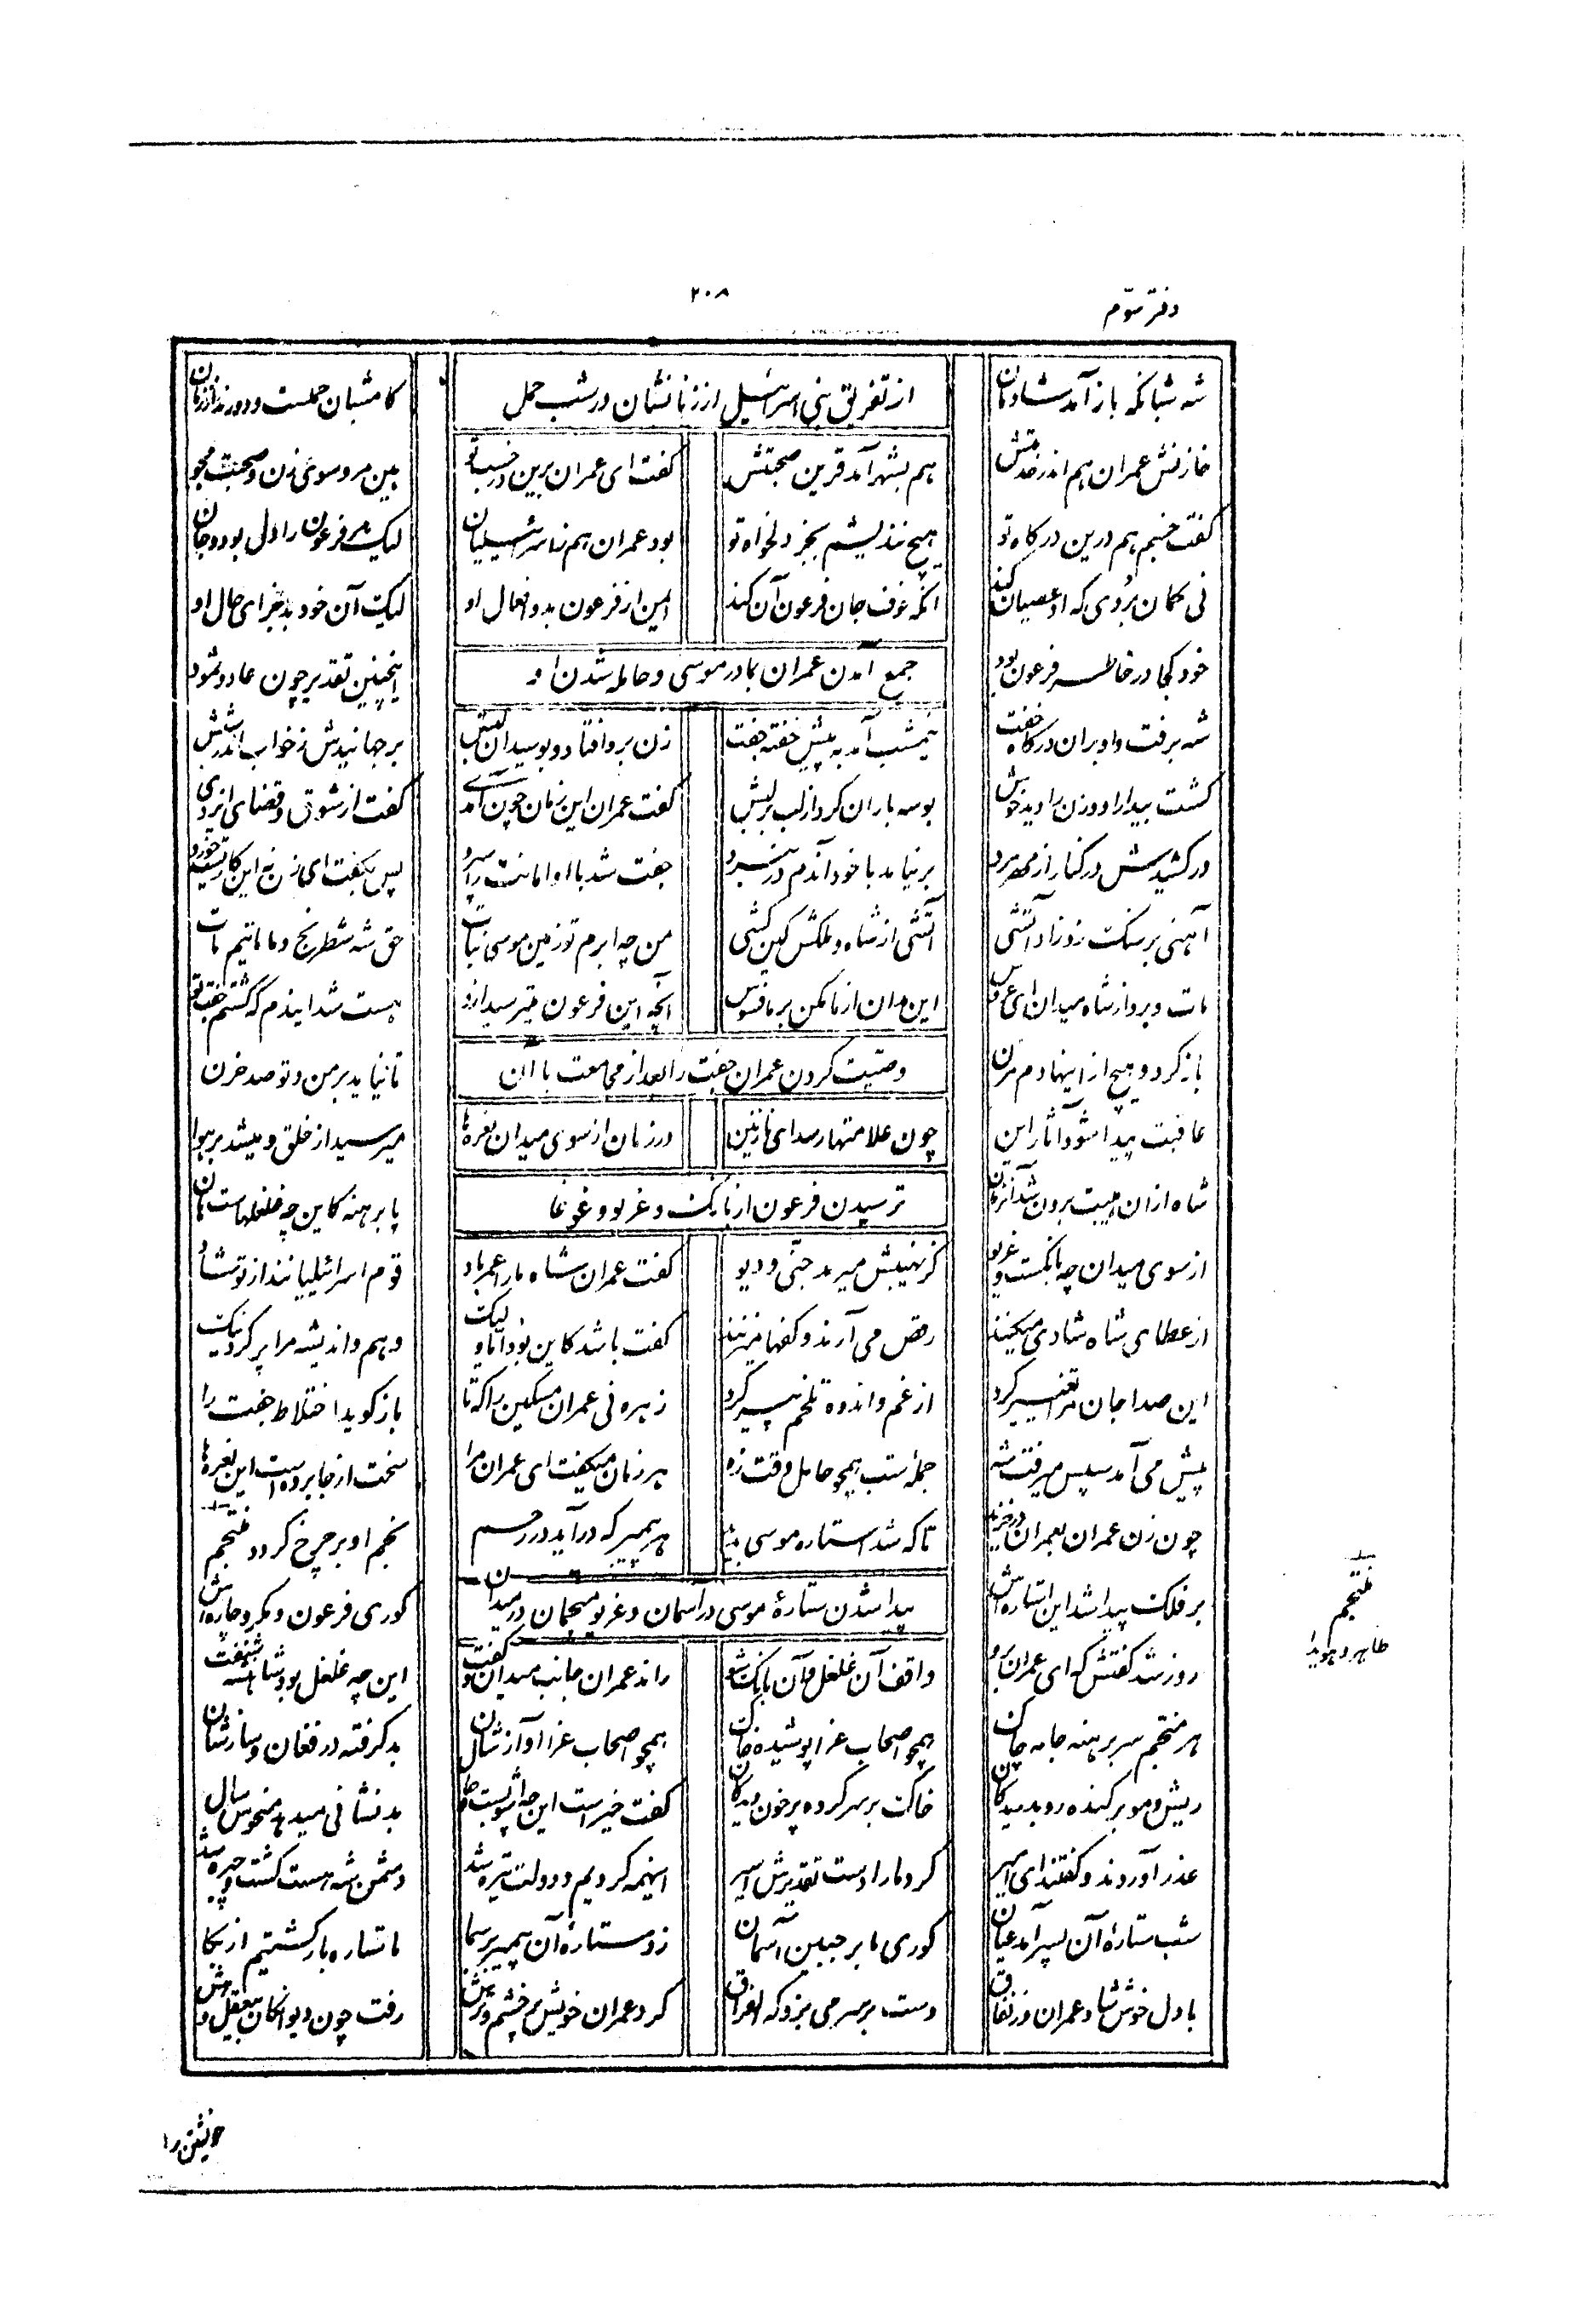 دفتر سوّم
۲۰۸
شه شبانگه باز آمد شادمان از تفریق بنی اسرائیل از زنانشان در شب حمل کامشبان حملست و دورند از زنان
خازنش عمران هم اندر خدمتش هم بشهر آمد قرین صحبتش گفت ای عمران برین در خسب تو هین مرو سوی زن و صحبت مجو
گفت خسبم هم درین درگاه تو هیچ نندیشم بجز دلخواه تو بود عمران هم ز اسرائیلیان لیک مر فرعون را دل بود و جان
کی گمان بردی که او عصیان کند آنکه خوف جان فرعون آن کند امین از فرعون بد و افعال او لیک آن خود بد جزای حال او
خود کجا در خاطر فرعون بود جمع آمدن عمران بمادر موسی و حامله شدن او اینچنین تقدیر چون عاد و ثمود
شه برفت و او بران درگاه خفت نیمشب آمد به پیش خفته جفت زن برو افتاد و بوسید آن لبش برجهانیدش ز خواب اندر شبش
گشت بیدار او و زن را دید خوش بوسه باران کرد از لب بر لبش گفت عمران این زمان چون آمدی گفت از شوق و قضای ایزدی
در کشیدش در کنار از مهر مرد بر نیامد با خود آندم در نبرد جفت شد با او امانت را سپرد پس بگفت ای زن نه این کاریست خورد
آهنی بر سنگ زد زاد آتشی آتشی از شاه و ملکش کین کشی من چو ابرم تو زمین موسی نبات حق شه شطرنج و ما ماتیم مات
مات و برد از شاه میدان ای عروس این مدان از ما مکن بر ما فسوس آنچه این فرعون میترسید ازو هست شد ایندم که گشتم جفت تو
باز گرد و هیچ از اینها دم مزن وصیّت کردن عمران جفت را بعد از مجامعت با آن تا نیاید بر من و تو صد حزن
عاقبت پیدا شود آثار این چون علامتها رسد ای نازنین در زمان از سوی میدان نعره‌ها میرسید از خلق و میشد بر هوا
شاه از ان هیبت برون شد آنزمان ترسیدن فرعون از بانگ و غریو و غوغا پا برهنه کاین چه غلغلهاست هان
از سوی میدان چه بانگست و غریو کز نهیبش میرمد جنّی و دیو گفت عمران شاه ما را عمر باد قوم اسرائیلیانند از تو شاد
از عطای شاه شادی میکنند رقص می آرند و کفها میزنند گفت باشد کاین بود امّا و لیک وهم و اندیشه مرا پر کرد نیک
این صدا جان مرا تغییر کرد از غم و اندوه تلخم پیر کرد زهره نی عمران مسکین را که تا باز گوید اختلاط جفت را
پیش می آمد سپس میرفت شه جملهٔ شب همچو حامل وقت زه هر زمان میگفت ای عمران مرا سخت از جا برده است این نعره‌ها
چون زن عمران بعمران در خزید تا که شد استاره موسی پدید هر پیمبر که درآید در رحم نجم او بر چرخ گردد منتجم
بر فلک پیدا شد این استاره‌اش پیدا شدن ستارهٔ موسی در آسمان و غریو منجمان در میدان کوری فرعون و مکر و چاره‌اش
منتجم
ظاهر و هویدا
روز شد گفتش که ای عمران برو واقف آن غلغل و آن بانگ شو راند عمران جانب میدان و گفت این چه غلغل بود شاهنشه نخفت
هر منجم سر برهنه جامه چاک همچو اصحاب عزا پوشیده خاک همچو اصحاب عزا آوازشان بد گرفته در فغان و سازشان
ریش و مو بر کنده رو بدریدگان خاک بر سر کرده پر خون دیدگان گفت خیر است این چه آشوبست و حال بد نشانی میدهد منحوس سال
عذر آوردند و گفتند ای امیر کرد ما را دست تقدیرش اسیر اینهمه کردیم و دولت تیره شد دشمن شه هست گشت و چیره شد
شب ستارهٔ آن پسر آمد عیان کوری ما بر جبین آسمان زد ستارهٔ آن پیمبر بر سما ما ستاره بار گشتیم از بکا
با دل خوش شاد عمران وز نفاق دست بر سر می بزد که الفراق کرد عمران خویش پر خشم و ترش رفت چون دیوانگان بیعقل و هش
خویشتن را